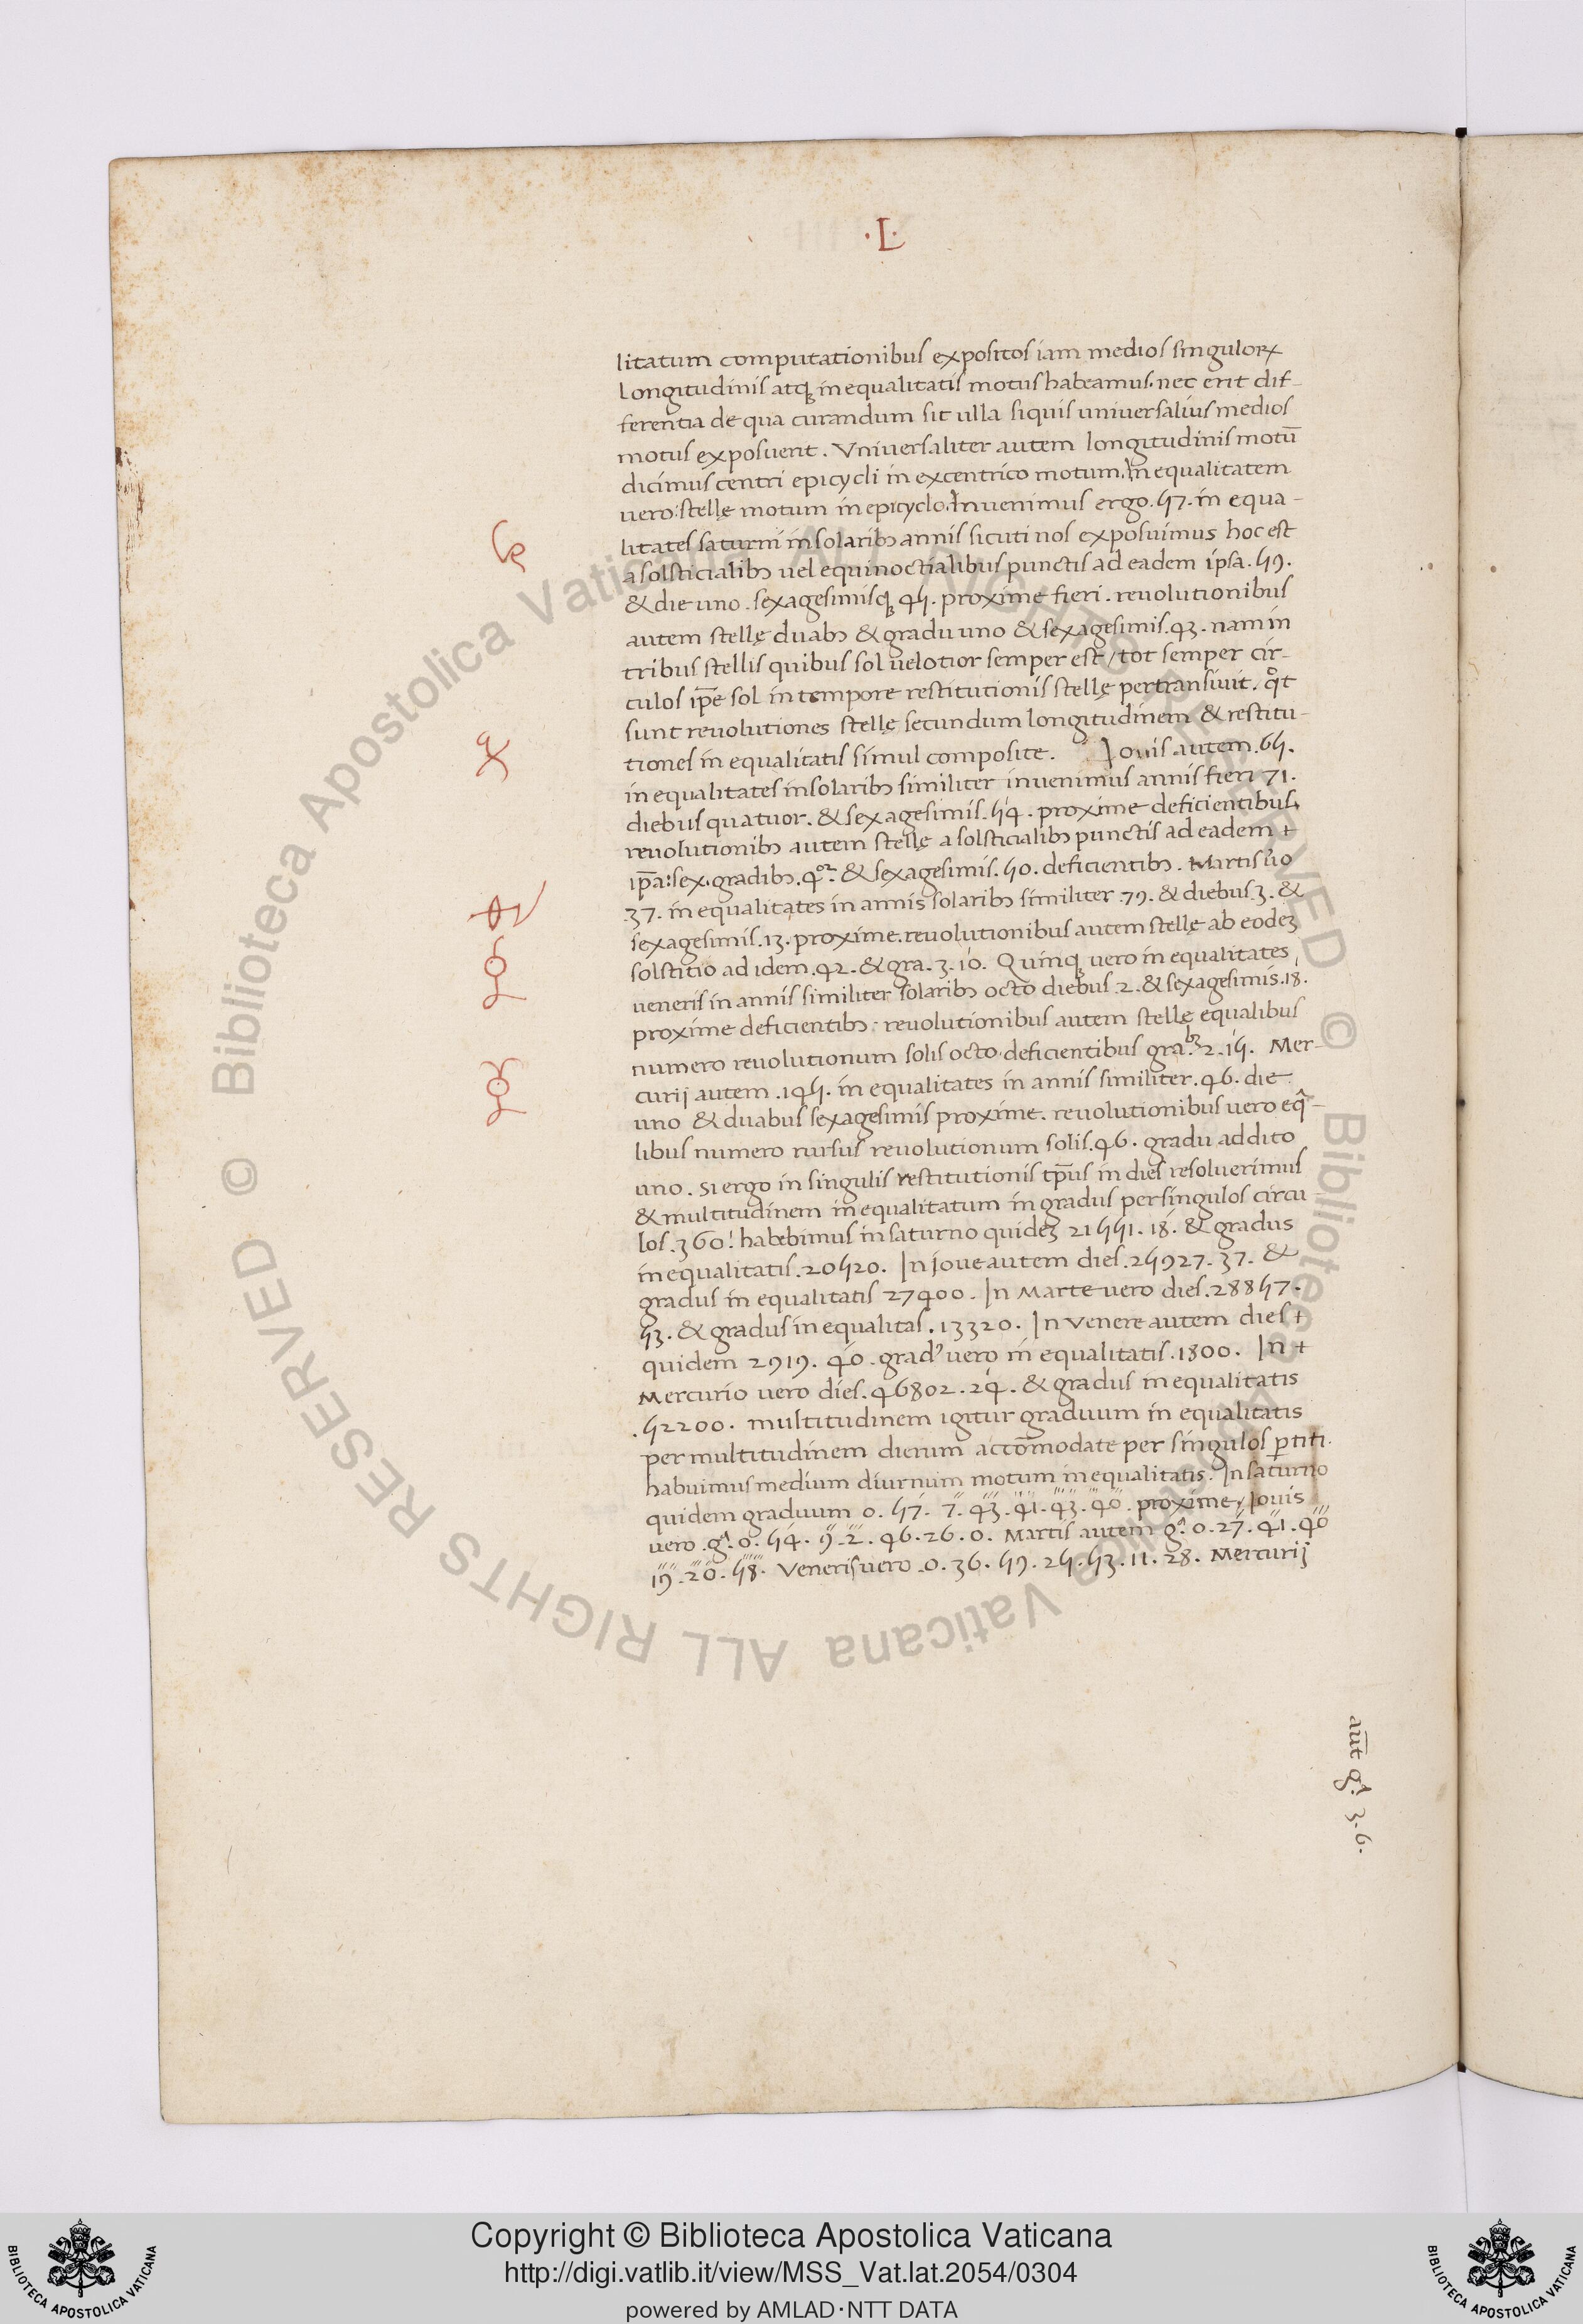 .L.
litatum computationibus expositos iam medios singuloꝝ
longitudinis atqꝫ inequalitatis motus habeamus. nec erit dif-
ferentia de qua curandum sit ulla siquis universalius medios
motus exposuerit. Vniversaliter autem longitudinis motū
dicimus centri epicycli in excentrico motum. Inequalitatem
vero: stellę motum in epicyclo. Invenimus ergo. 57. in equa-
litates saturni in solaribꝫ annis sicuti nos exposuimus hoc est
a solsticialibꝫ vel equinoctialibus punctis ad eadem ipsa. 59.
& die uno. sexagesimisqꝫ 45. proxime fieri. revolutionibus
autem stellę duabꝫ & gradu uno & sexagesimis. 43. nam in
tribus stellis quibus sol velotior semper est / tot semper cir-
culos ip̄e sol in tempore restitutionis stellę pertransivit. qͦt
sunt revolutiones stellę secundum longitudinem & restitu-
tiones in equalitatis simul composite. Jovis autem. 65.
in equalitates in solaribꝫ similiter invenimus annis fieri 71.
diebus quatuor. & sexagesimis. 54. proxime deficientibus.
revolutionibꝫ autem stellę a solsticialibꝫ punctis ad eadem +
ip̄a: sex. gradibꝫ. 4oꝛ. & sexagesimis. 50. deficientibꝫ. Martis ůo
.37. in equalitates in annis solaribꝫ similiter. 79. & diebus 3. &
sexagesimis. 13. proxime. revolutionibus autem stellę ab eodeꝫ
solstitio ad idem. 42. & gra. 3. 10. Quinqꝫ vero in equalitates
veneris in annis similiter solaribꝫ octo diebus. 2. & sexagesimis. 18.
proxime deficientibꝫ: revolutionibus autem stellę equalibus
numero revolutionum solis octo. deficientibus gra.bꝫ 2. 15. Mer-
curij autem. 145. in equalitates in annis similiter. 46. die
uno & duabus sexagesimis proxime. revolutionibus vero eq̂-
libus numero rursus revolutionum solis. 46. gradu addito
uno. si ergo in singulis restitutionis tp̄us in dies resolverimus
& multitudinem inequalitatum in gradus per singulos circu
los. 360! habebimus in saturno quideꝫ 21551. 18. & gradus
in equalitatis. 20520. In jove autem dies. 25927. 37. &
gradus in equalitatis 27400. In Marte vero dies. 28857.
53. & gradus in equalitas. 13320. In Venere autem dies +
quidem 2919. 40. gradꝰ vero in equalitatis. 1800. In +
Mercurio vero dies. 46802. 24. & gradus in equalitatis
.52200. multitudinem igitur graduum in equalitatis
per multitudinem dierum accōmodate per singulos ꝑtiti.
habuimus medium diurnum motum in equalitatis. In saturno
quidem graduum 0. 57. 7. 43. 41. 43. 40. proxime, Jovis
vero. gᵃ. 0. 54. 9. 2. 46. 26. 0. Martis autem gᵃ. 0. 27. 41. 40
19. 20. 58. Veneris vero. 0. 36. 59. 25. 53. 11. 28. Mercurij
♄
♃
♂
♀
☿
aūt gᵃ. 3. 6.
© Biblioteca Apostolica Vaticana ALL RIGHTS RESERVED © Biblioteca Apostolica Vaticana ALL RIGHTS RESERVED
Copyright © Biblioteca Apostolica Vaticana
http://digi.vatlib.it/view/MSS_Vat.lat.2054/0304
powered by AMLAD·NTT DATA
BIBLIOTECA APOSTOLICA VATICANA
BIBLIOTECA APOSTOLICA VATICANA